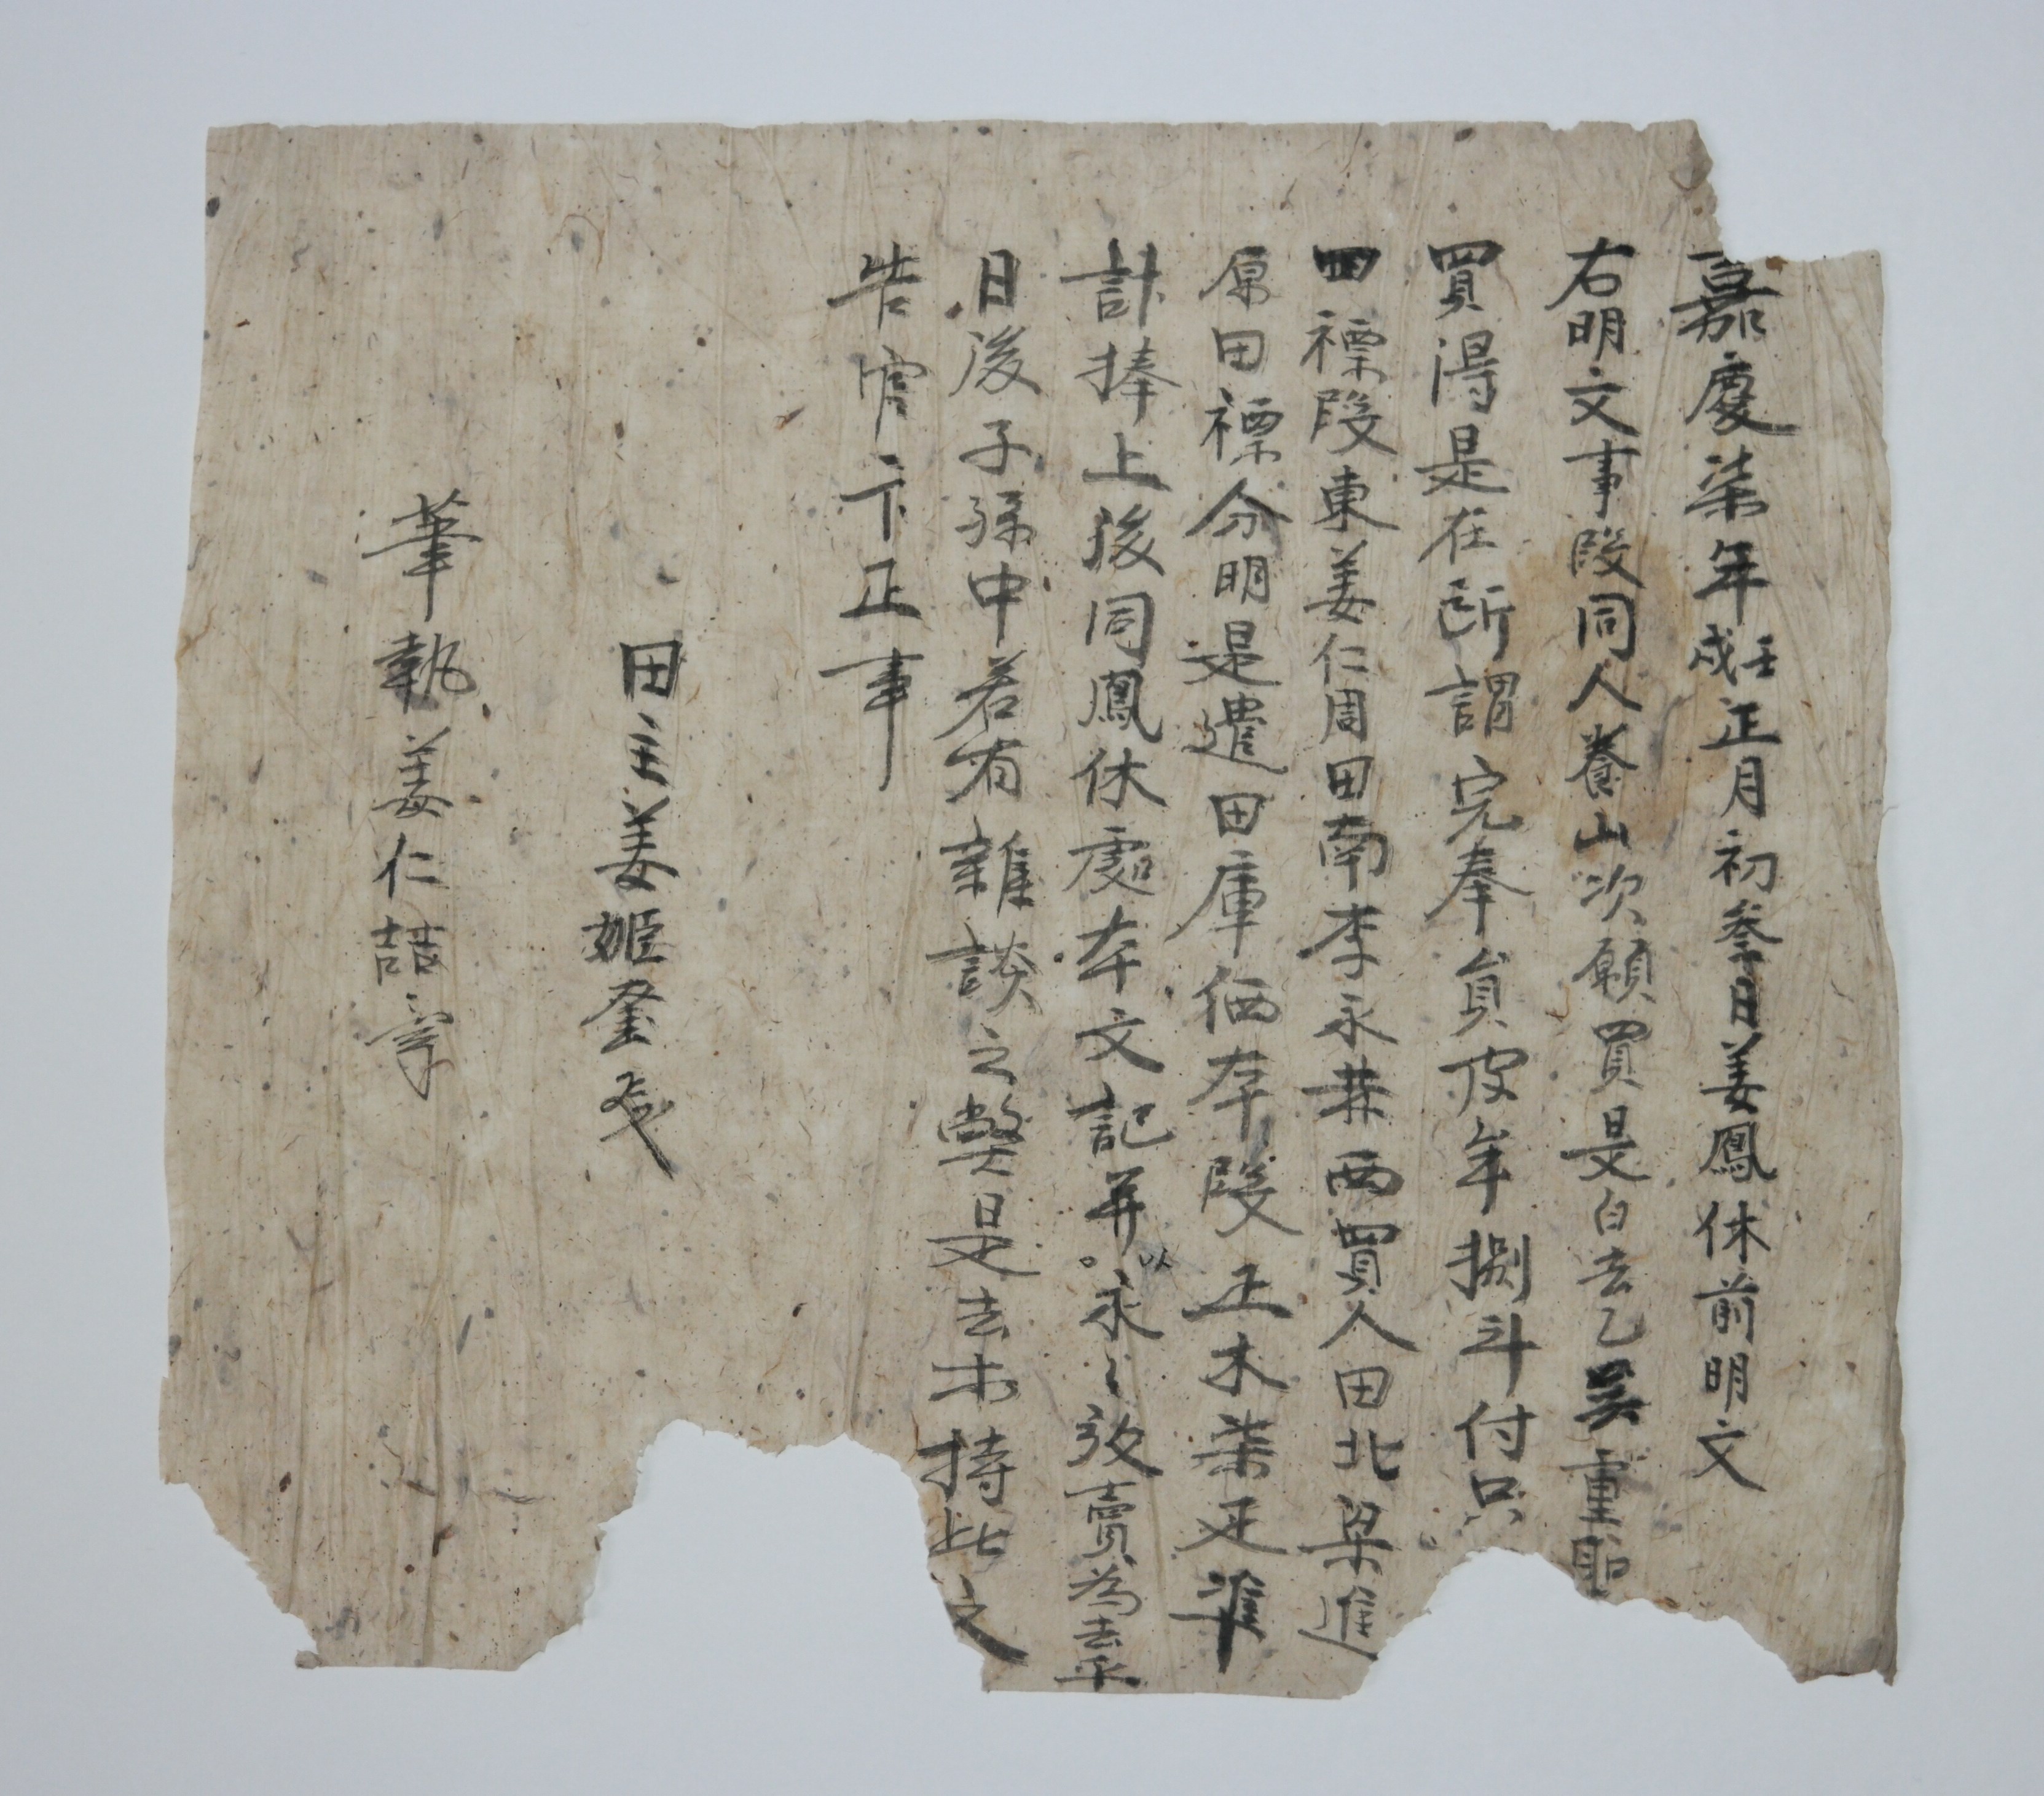 嘉慶柒年壬戌正月初叄日姜鳳休前明文
右明文事段同人養山次願買是白去乙吴重
買得是在所謂完奉員皮牟捌斗付只
四標段東姜仁周田南李永恭西買人田北梁進
原田標分明是遣田庫価本段正木柒疋準
計捧上後同鳳休處本文記并以永〻放賣為去乎
日後子孫中若有雜談之獘是去木持此文
告官卞正事
田主姜姬奎
筆執姜仁喆